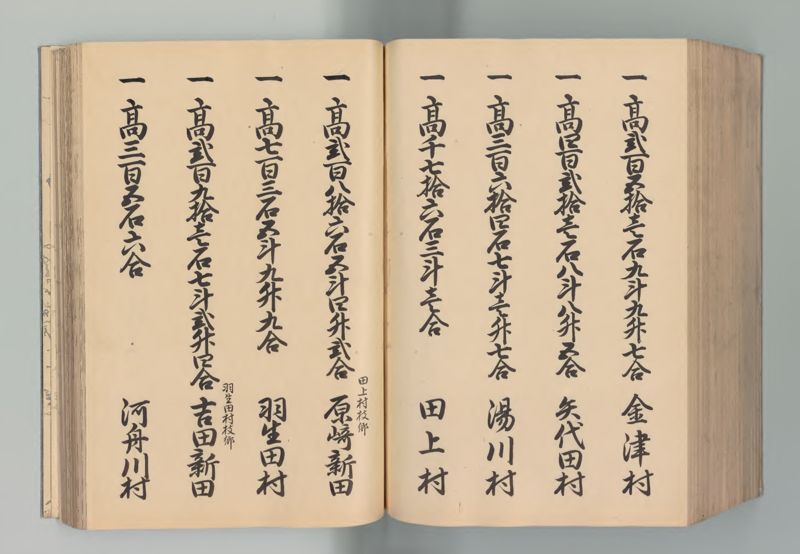 一 高弐百五拾壱石九斗九升七合 金津村
一 高四百弐拾壱石八斗八升五合 矢代田村
一 高三百六拾四石七斗壱升七合 湯川村
一 高千七拾六石三斗壱合 田上村
田上村枝郷
一 高弐百八拾六石五斗四升弐合 原﨑新田
一 高七百三石五斗九升九合 羽生田村
羽生田村枝郷
一 高弐百九拾壱石七斗弐升四合 吉田新田
一 高三百五石六合 河舟川村